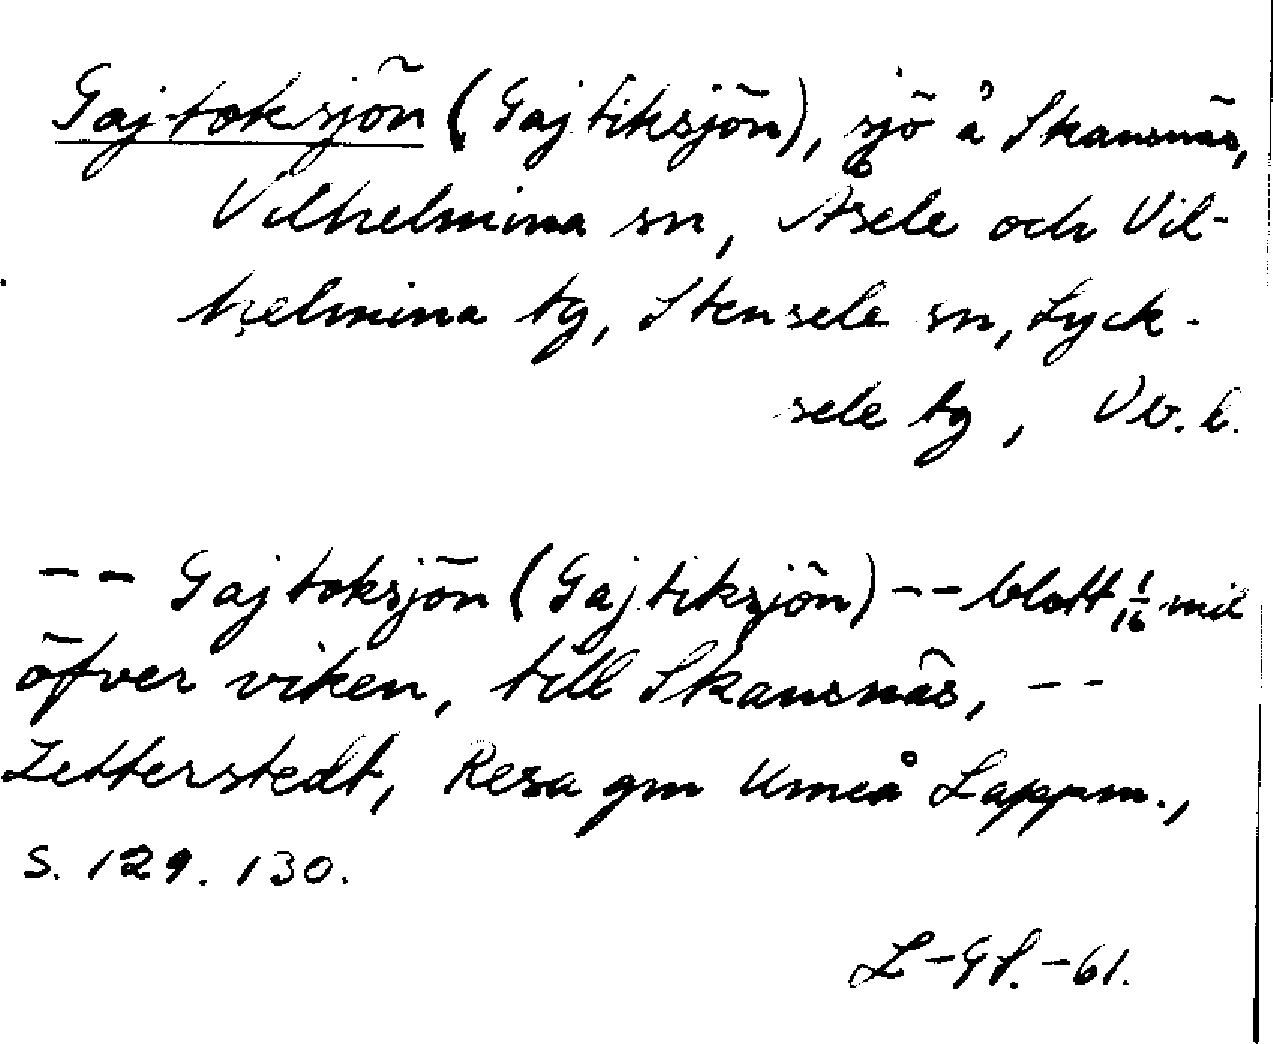 Gajtoksjön (Gajtiksjön), sjö å Skansnäs,
Vilhelmina sn, Åsele och Vil-
helmina tg, Stensele sn, Lyck-
sele tg, Vb. l.
-- Gajtoksjön (Gajtiksjön) -- blott 1/16 mil
öfver viken, till Skansnäs, --
Zetterstedt, Resa gm Umeå Lappm.,
S. 129. 130.
L-GS.-61.